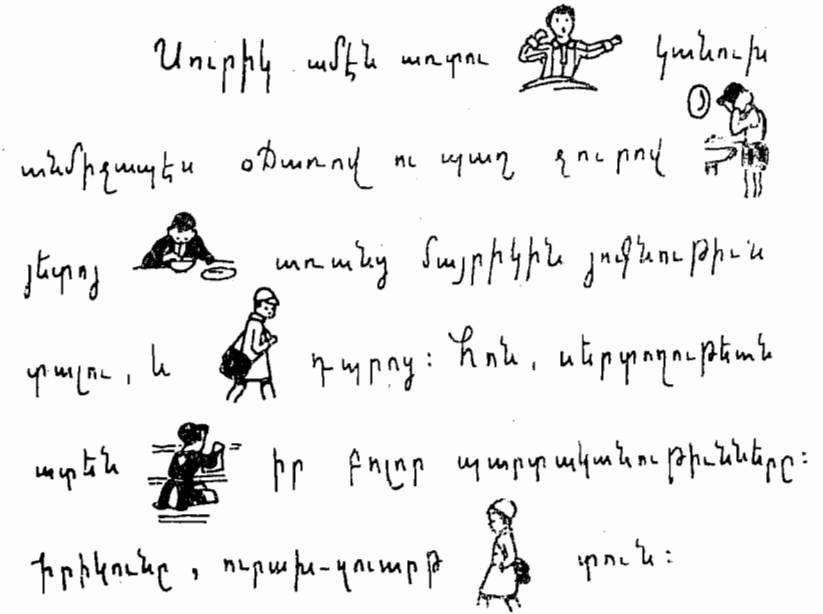 Սուրիկ ամէն առտու կանուխ
անմիջապէս օճառով ու պաղ ջուրով
յետոյ առանց մայրիկին յոգնութիւն
տալու, և դպրոց։ Հոն, սերտողութեան
ատեն իր բոլոր պարտականութիւնները։
Իրիկունը, ուրախ-զուարթ տուն։